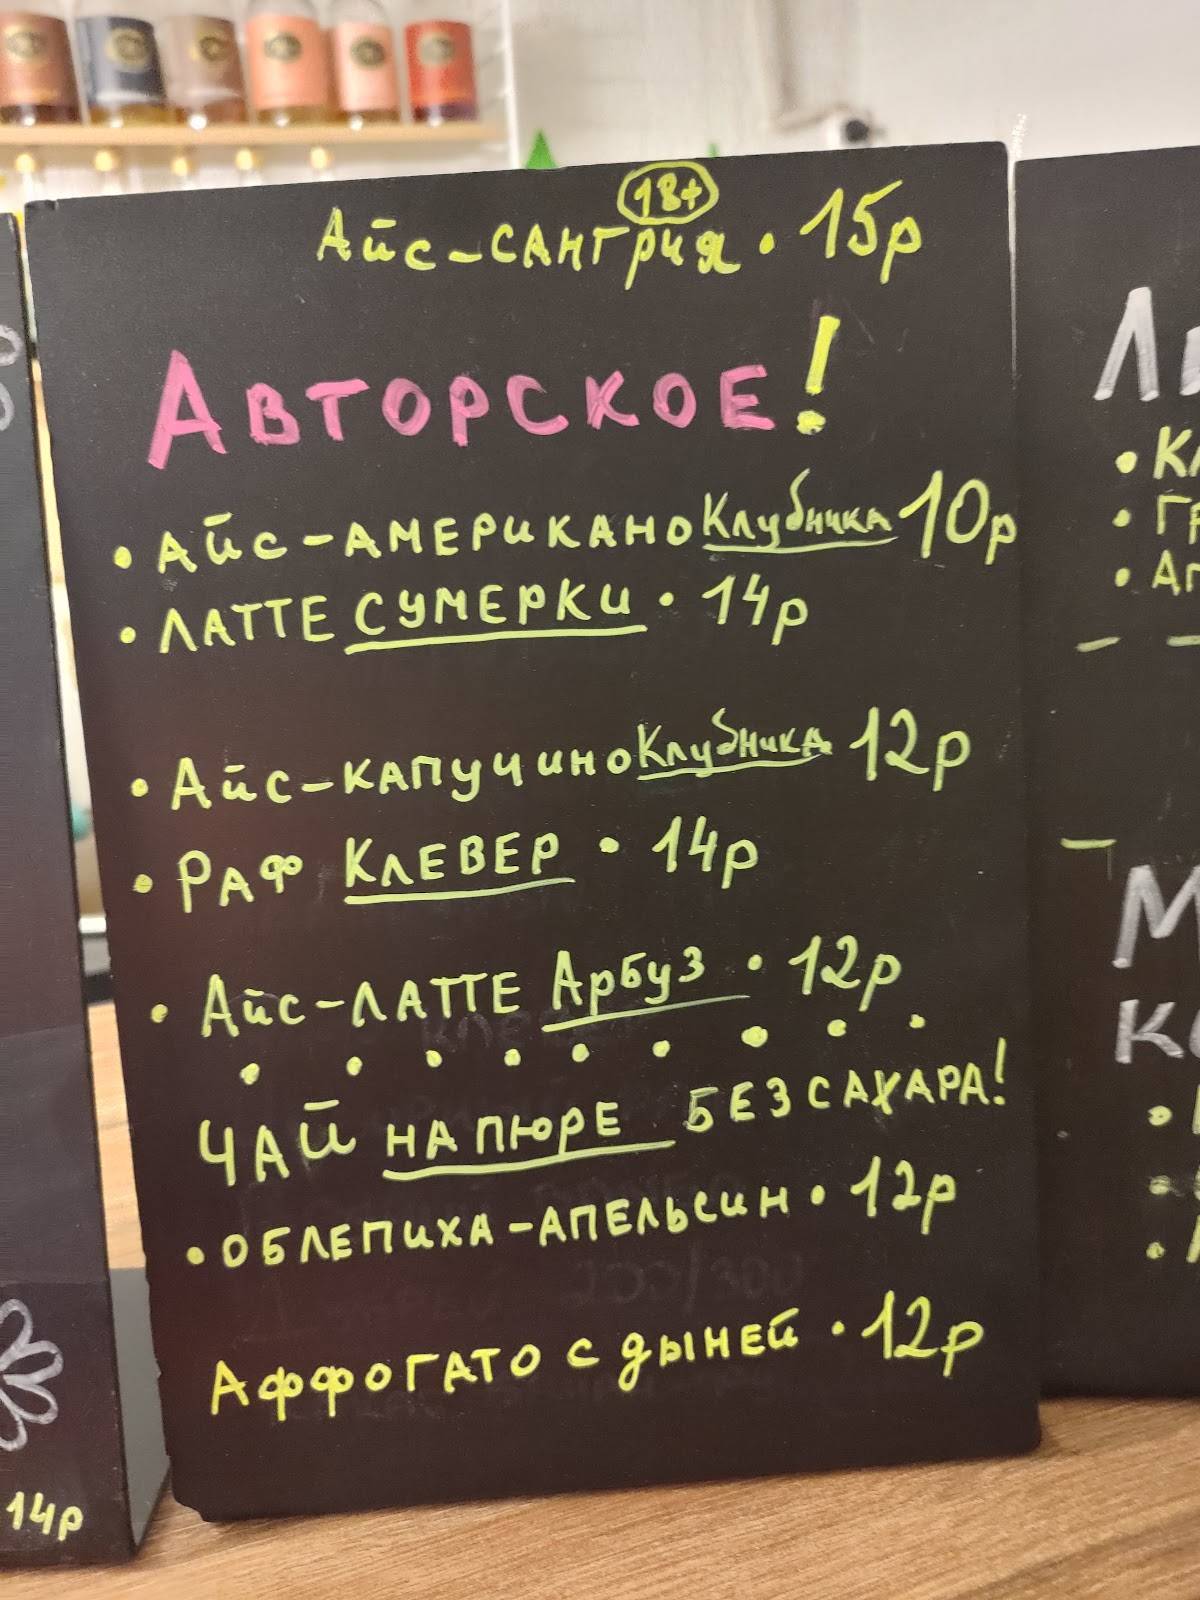 18+
Айс-сангрия • 15р
Авторское!
• Айс-американо Клубника 10р
• Латте Сумерки • 14р
• Айс-капучино Клубника 12р
• Раф Клевер • 14р
• Айс-латте Арбуз • 12р
Чай на пюре без сахара!
• Облепиха-апельсин • 12р
Аффогато с дыней • 12р
14р